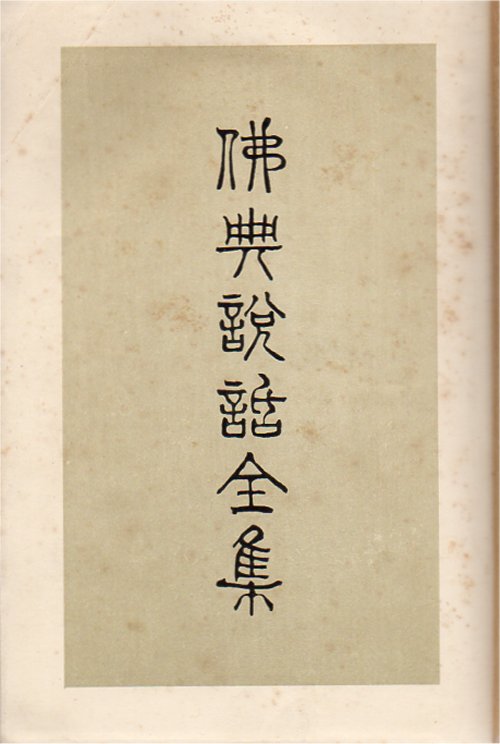 佛典說話全集